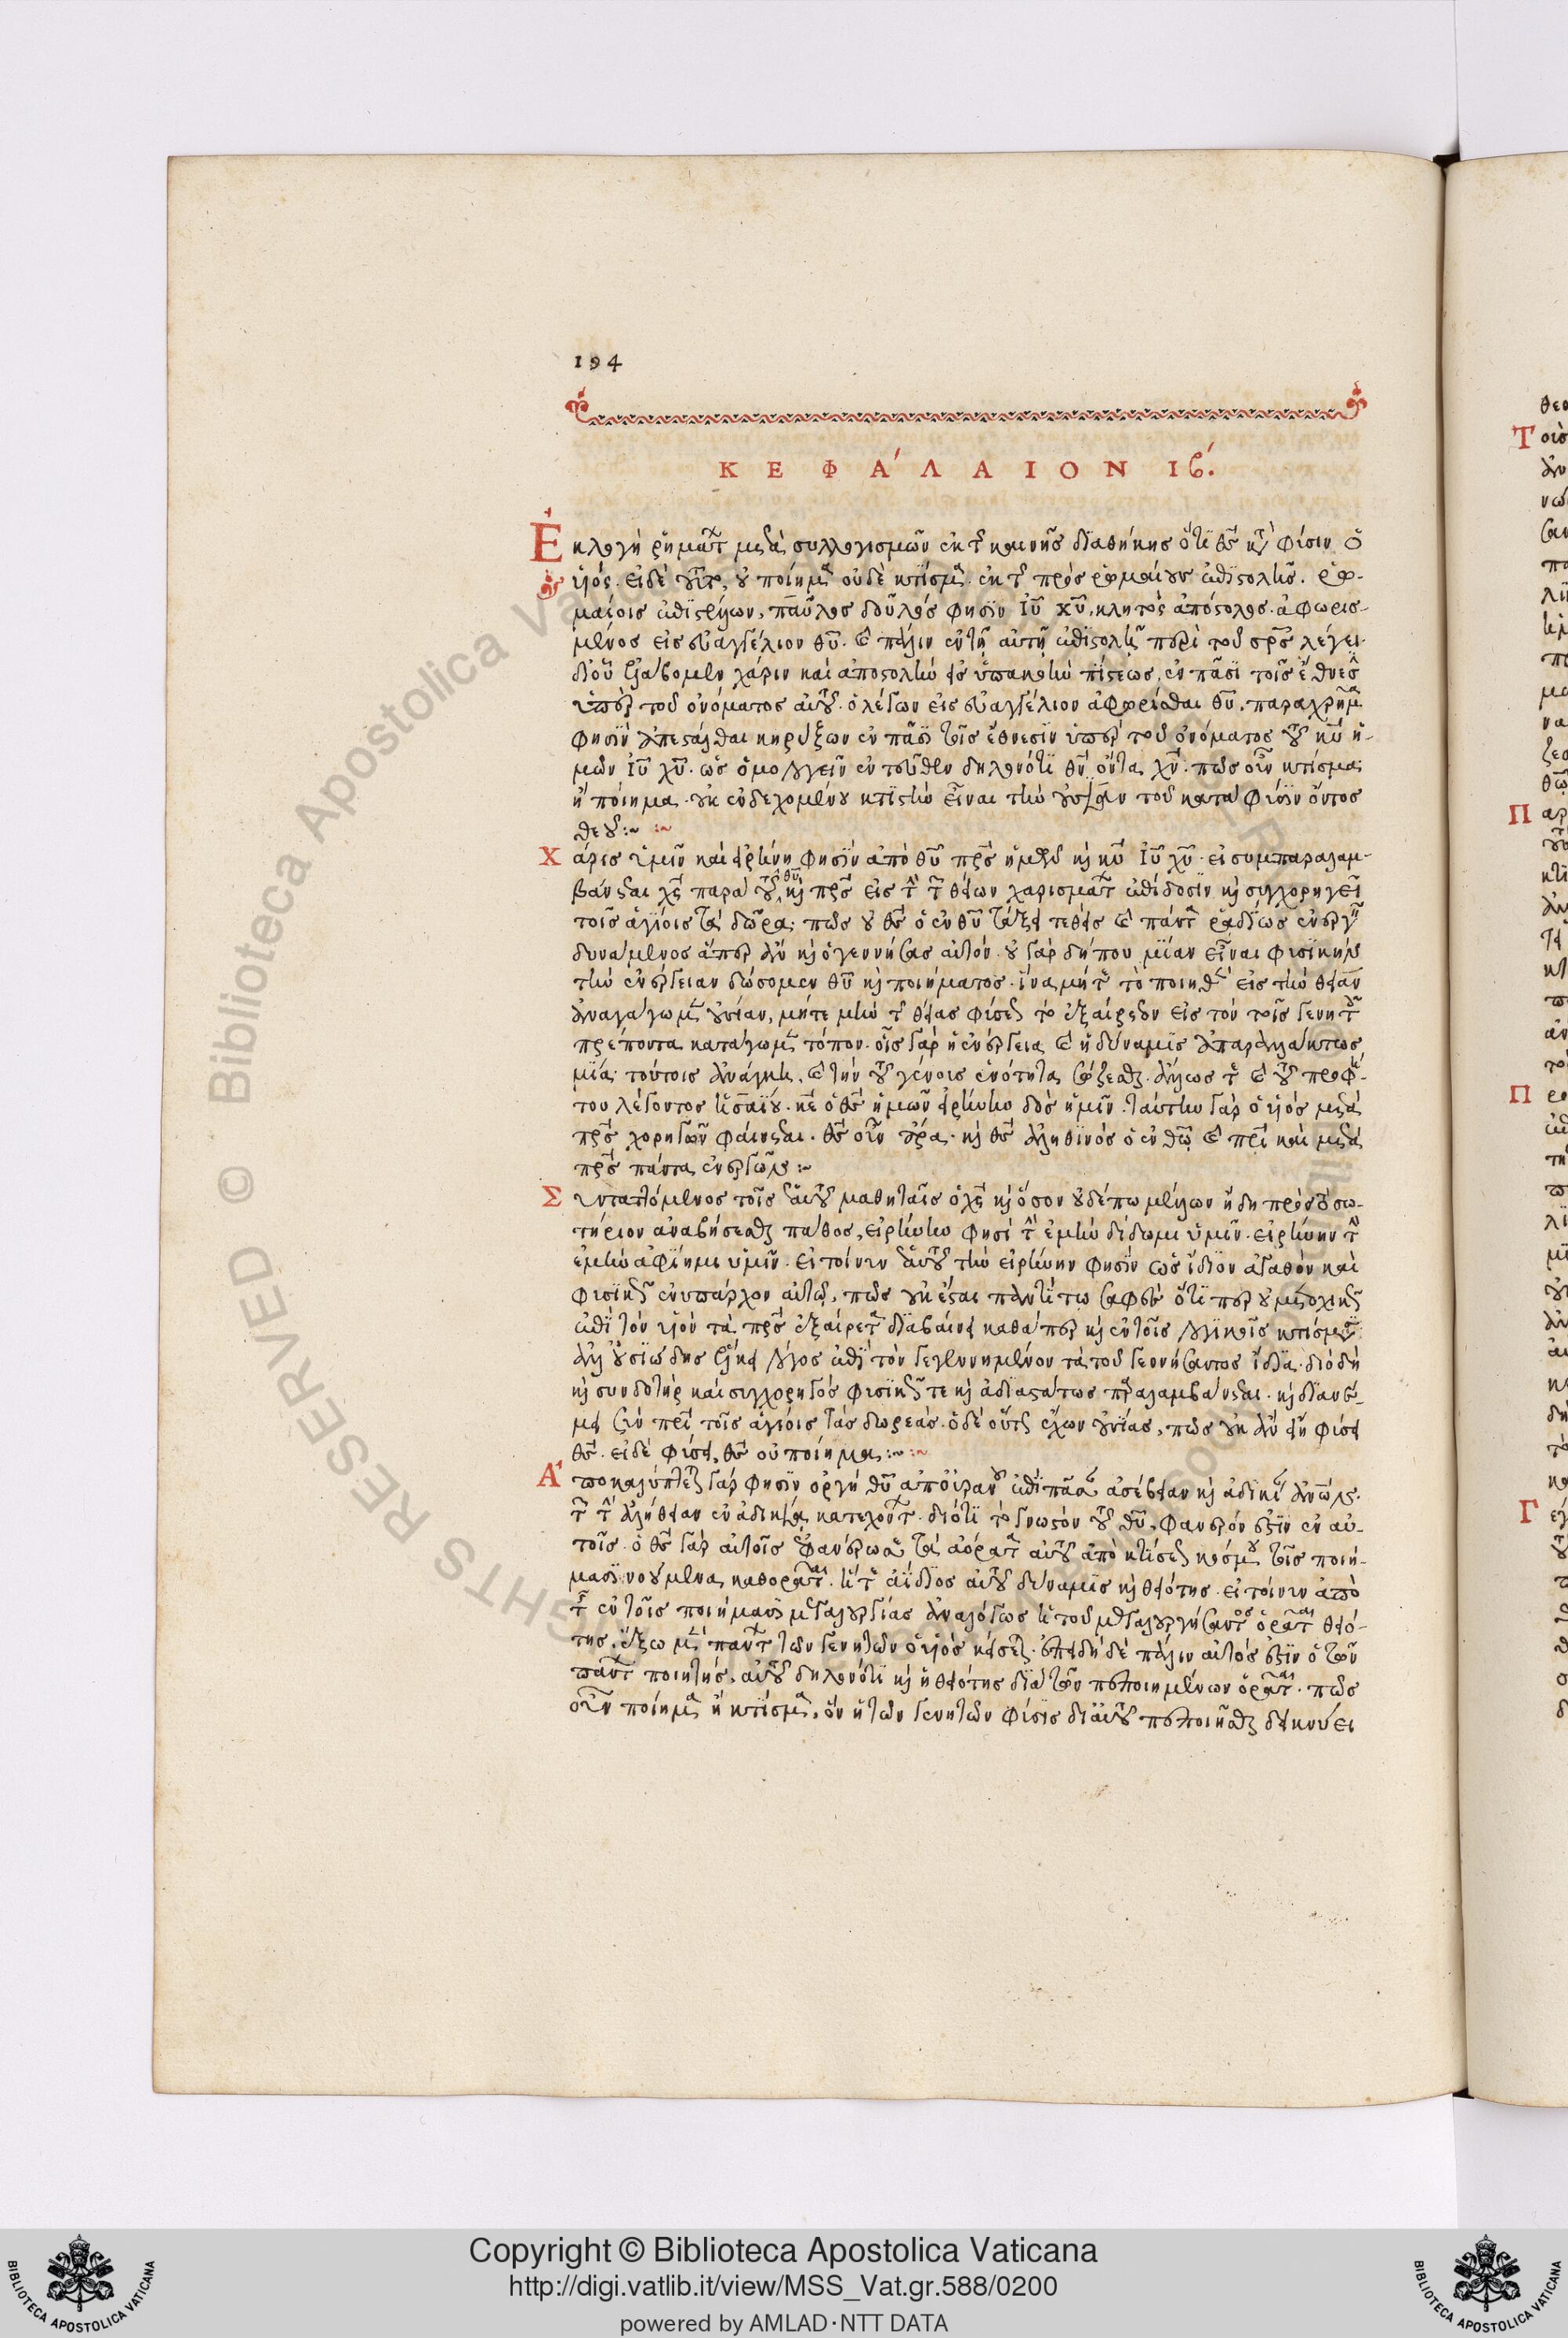 194
ΚΕΦΑ´ΛΑΙΟΝ ΙϚ´.
Ἐκλογὴ ῥημάτ μετὰ συλλογισμῶν ἐκ τ καινῆς διαθήκης ὅτι θς κτ φύσιν ὁ
υἱός. εἰ δὲ τοῦτο, οὐ ποίημα οὐδὲ κτίσμα. ἐκ τ πρὸς ῥωμαίους ἐπιστολῆς. ῥω-
μαίοις ἐπιστέλλων, παῦλος δοῦλός φησιν ἰυ χυ, κλητὸς ἀπόστολος. ἀφωρισ-
μένος εἰς εὐαγγέλιον θυ. καὶ πάλιν ἐν τῇ αὐτῇ ἐπιστολῇ περὶ τοῦ σρς λέγει.
δι' οὗ ἐλάβομεν χάριν καὶ ἀποστολὴν εἰς ὑπακοὴν πίστεως, ἐν πᾶσι τοῖς ἔθνεσ
ὑπὲρ τοῦ ὀνόματος αὐτοῦ. ὁ λέγων εἰς εὐαγγέλιον ἀφωρίσθαι θυ, παραχρῆμα
φησὶν ἀπεστάλθαι κηρύξων ἐν πᾶσι τοῖς ἔθνεσιν ὑπὲρ τοῦ ὀνόματος τοῦ κυ ἡ-
μῶν ἰυ χυ. ὡς ὁμολογεῖν ἐντεῦθεν δηλονότι θν ὄντα χν. πῶς οὖν κτίσμα
ἢ ποίημα. οὐκ ἐνδεχομένου κτιστὴν εἶναι τὴν οὐσίαν τοῦ κατὰ φύσιν ὄντος
θεοῦ :~ :~
Χάρις ὑμῖν καὶ εἰρήνη φησὶν ἀπὸ θυ πρς ἡμῶν καὶ κυ ἰυ χυ. εἰ συμπαραλαμ-
βάνεται χς παρὰ τοῦ θυ καὶ πρς εἰς τὴν τῶν θείων χαρισμάτ ἐπίδοσιν καὶ συγχορηγεῖ
τοῖς ἁγίοις τὰ δῶρα, πῶς οὐ θς ὁ ἐν θυ τάξει τεθεὶς καὶ πάντα ῥαδίως ἐνεργεῖν
δυνάμενος ἅπερ ἂν καὶ ὁ γεννήσας αὐτόν. οὐ γὰρ δήπου μίαν εἶναι φυσικὴν
τὴν ἐνέργειαν δώσομεν θυ καὶ ποιήματος. ἵνα μήτε τὸ ποιηθὲν εἰς τὴν θείαν
ἀναγάγωμεν οὐσίαν, μήτε μὴν τ θείας φύσεως τὸ ἐξαίρετον εἰς τὸν τοῖς γενητοῖς
πρέποντα κατάγωμεν τόπον. οἷς γὰρ ἡ ἐνέργεια καὶ ἡ δύναμις ἀπαραλλάκτως
μία. τούτοις ἀνάγκη, καὶ τὴν τοῦ γένους ἑνότητα σώζεσθαι. ἄλλως τε καὶ τοῦ προφή-
του λέγοντος ἡσαΐου. κε ὁ θς ἡμῶν εἰρήνην δὸς ἡμῖν. ταύτην γὰρ ὁ υἱὸς μετὰ
πρς χορηγῶν φαίνεται. θς οὖν ἄρα. καὶ θς ἀληθινὸς ὁ ἐν θῶ καὶ πρὶ καὶ μετὰ
πρς πάντα ἐνεργῶν :~
Συνταττόμενος τοῖς ἑαυτοῦ μαθηταῖς ὁ χς καὶ ὅσον οὐδέπω μέλλων ἤδη πρὸς τὸ σω-
τήριον ἀναβήσεσθαι πάθος, εἰρήνην φησὶ τὴν ἐμὴν δίδωμι ὑμῖν. εἰρήνην τὴν
ἐμὴν ἀφίημι ὑμῖν. εἰ τοίνυν ἑαυτοῦ τὴν εἰρήνην φησὶν ὡς ἴδιον ἀγαθὸν καὶ
φυσικῶς ἐνυπάρχον αὐτῷ, πῶς οὐκ ἔσται παντί τω σαφὲς ὅτι περ οὐ μετοχικῶς
ἐπὶ τὸν υἱὸν τὰ πρς ἐξαίρετα διαβαίνει καθάπερ καὶ ἐν τοῖς λογικοῖς κτίσμασι
ἀλλ' οὐσιώδης ἕλκει λόγος ἐπὶ τὸν γεγεννημένον τὰ τοῦ γεννήσαντος ἴδια. διὸ δὴ
καὶ συνδοτὴρ καὶ συγχορηγὸς φυσικῶς τε καὶ ἀδιαστάτως παραλαμβάνεται. καὶ διανέ-
μει σὺν πρὶ τοῖς ἁγίοις τὰς δωρεάς. ὁ δὲ οὕτως ἔχων οὐσίας, πῶς οὐκ ἂν εἴη φύσει
θς. εἰ δὲ φύσει, θς οὐ ποίημα :~ :~
Ἀποκαλύπτεται γάρ φησιν ὀργὴ θυ ἀπ' οὐρανοῦ ἐπὶ πᾶσαν ἀσέβειαν καὶ ἀδικίαν ἀνων.
τῶν τὴν ἀλήθειαν ἐν ἀδικίᾳ κατεχόντ. διότι τὸ γνωστὸν τοῦ θυ, φανερόν ἐστιν ἐν αὐ-
τοῖς. ὁ θς γὰρ αὐτοῖς ἐφανέρωσε. τὰ ἀόρατα αὐτοῦ ἀπὸ κτίσεως κόσμου τοῖς ποιή-
μασι νοούμενα καθορᾶται. ἥ τε ἀΐδιος αὐτοῦ δύναμις καὶ θειότης. εἰ τοίνυν ἀπὸ
τῆς ἐν τοῖς ποιήμασι μεγαλουργίας ἀναλόγως ἡ τοῦ μεγαλουργήσαντος ὁρᾶται θειό-
της, ἔξω μὲν πάντ τῶν γενητῶν ὁ υἱὸς κείσεται. ἐπειδὴ δὲ πάλιν αὐτός ἐστιν ὁ τῶν
πάντ ποιητής, αὐτοῦ δηλονότι καὶ ἡ θειότης διὰ τῶν πεποιημένων ὁρᾶται. πῶς
οὖν ποίημα ἢ κτίσμα, ὃν ἡ τῶν γενητῶν φύσις δι' αὐτοῦ πεποιῆσθαι δεικνύει
Copyright © Biblioteca Apostolica Vaticana
http://digi.vatlib.it/view/MSS_Vat.gr.588/0200
powered by AMLAD·NTT DATA